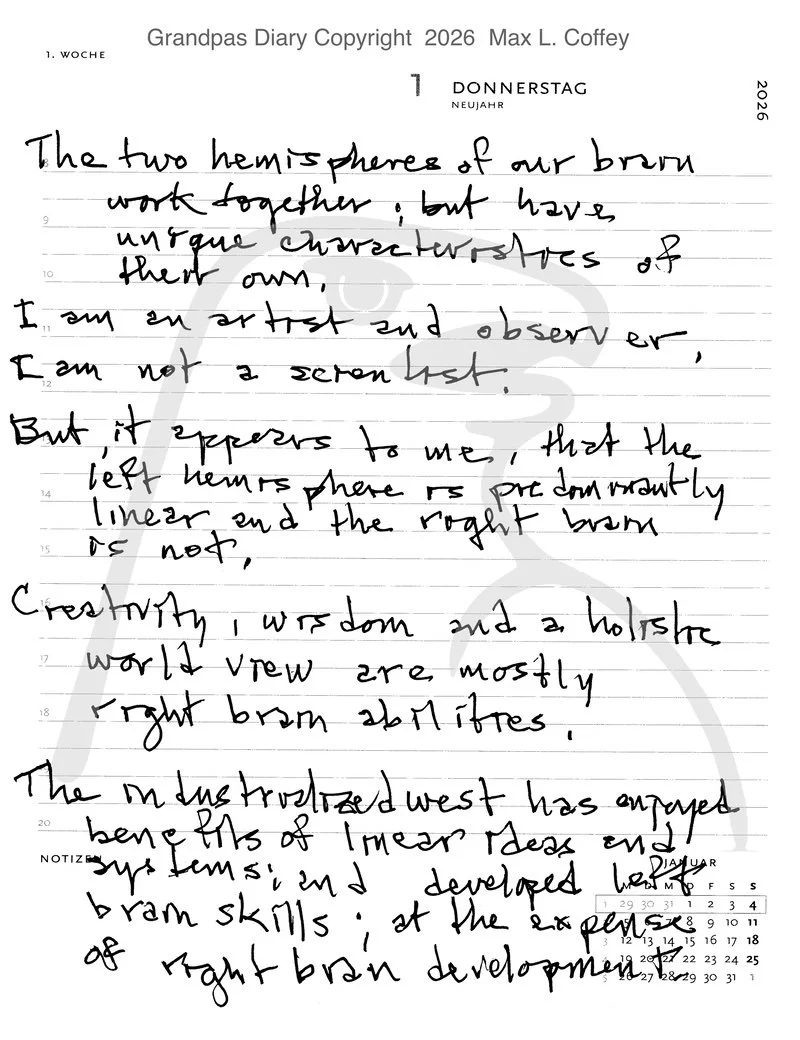 Grandpas Diary Copyright 2026 Max L. Coffey
1. WOCHE
1 DONNERSTAG
NEUJAHR
2026
The two hemispheres of our brain
work together; but have
unique characteristics of
their own.
I am an artist and observer,
I am not a scientist.
But, it appears to me, that the
left hemisphere is predominantly
linear and the right brain
is not,
Creativity, wisdom and a holistic
world view are mostly
right brain abilities.
The industrialized west has enjoyed
benefits of linear ideas and
systems; and developed left
brain skills; at the expense
of right brain development.
8
9
10
11
12
14
15
16
17
18
20
NOTIZEN
JANUAR
M D M D F S S
1 29 30 31 1 2 3 4
5 6 7 8 9 10 11
3 12 13 14 15 16 17 18
4 19 20 21 22 23 24 25
5 26 27 28 29 30 31 1